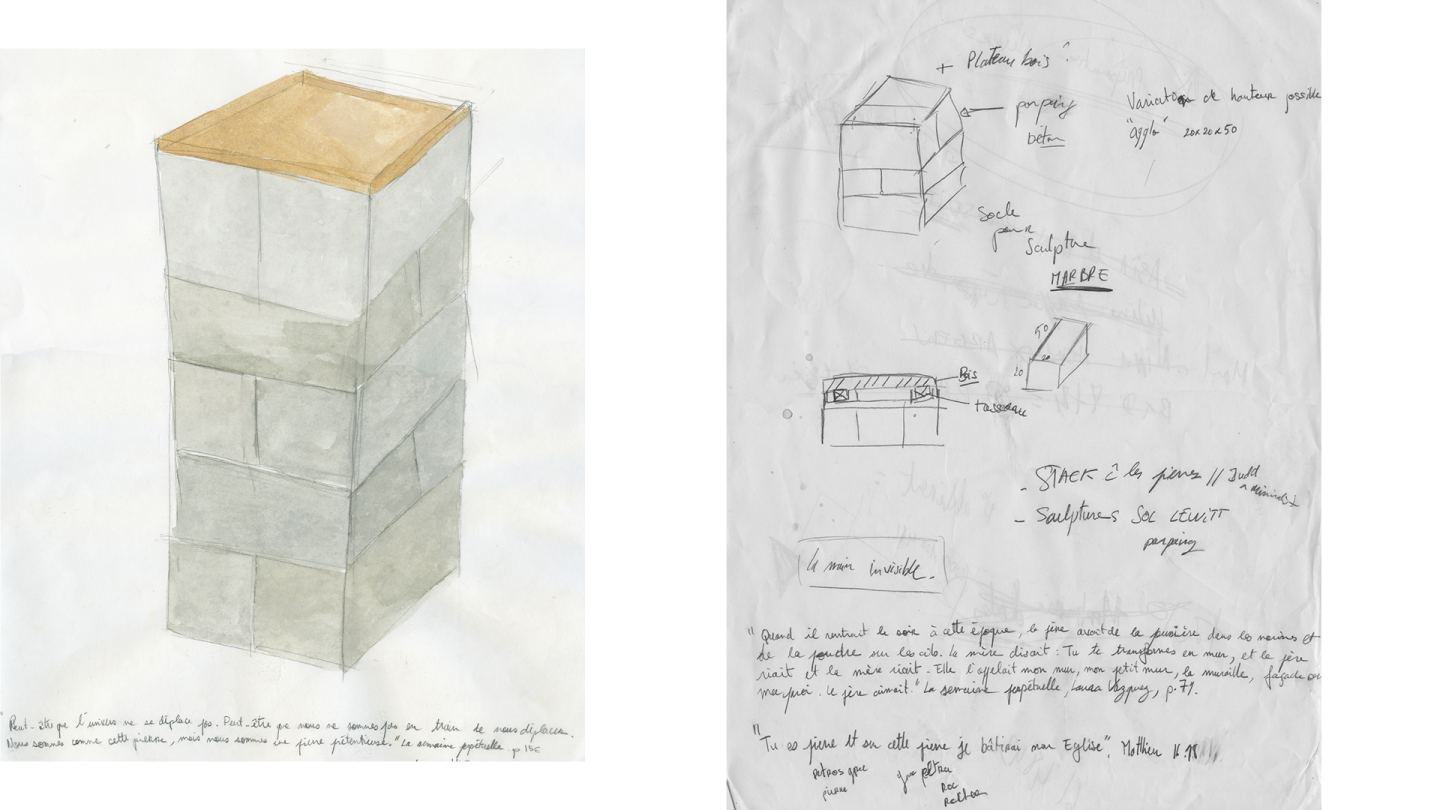 "Peut-être que l'univers ne se déplace pas. Peut-être que nous ne sommes pas en train de nous déplacer.
Nous sommes comme cette pierre, mais nous sommes une pierre prétentieuse." La semaine perpétuelle p 15
+ Plateau bois
parpaing
béton
Variation de hauteur possible
"agglo" 20x20x50
Socle
pour
Sculpture
MARBRE
50
20
20
Bois
tasseau
- STACK les pierres // Judd
- Sculptures SOL LEWITT
parpaing
la main invisible.
"Quand il rentrait le soir à cette époque, le père avait de la poussière dans les narines et
de la poudre sur les cils. La mère disait : Tu te transformes en mur, et le père
riait et la mère riait. Elle l'appelait mon mur, mon petit mur, la muraille, façade ou
ma paroi. Le père aimait." La semaine perpétuelle, Laura Vazquez, p. 79.
"Tu es pierre et sur cette pierre je bâtirai mon Eglise". Matthieu 16.18
petros grec
pierre
petra
roc